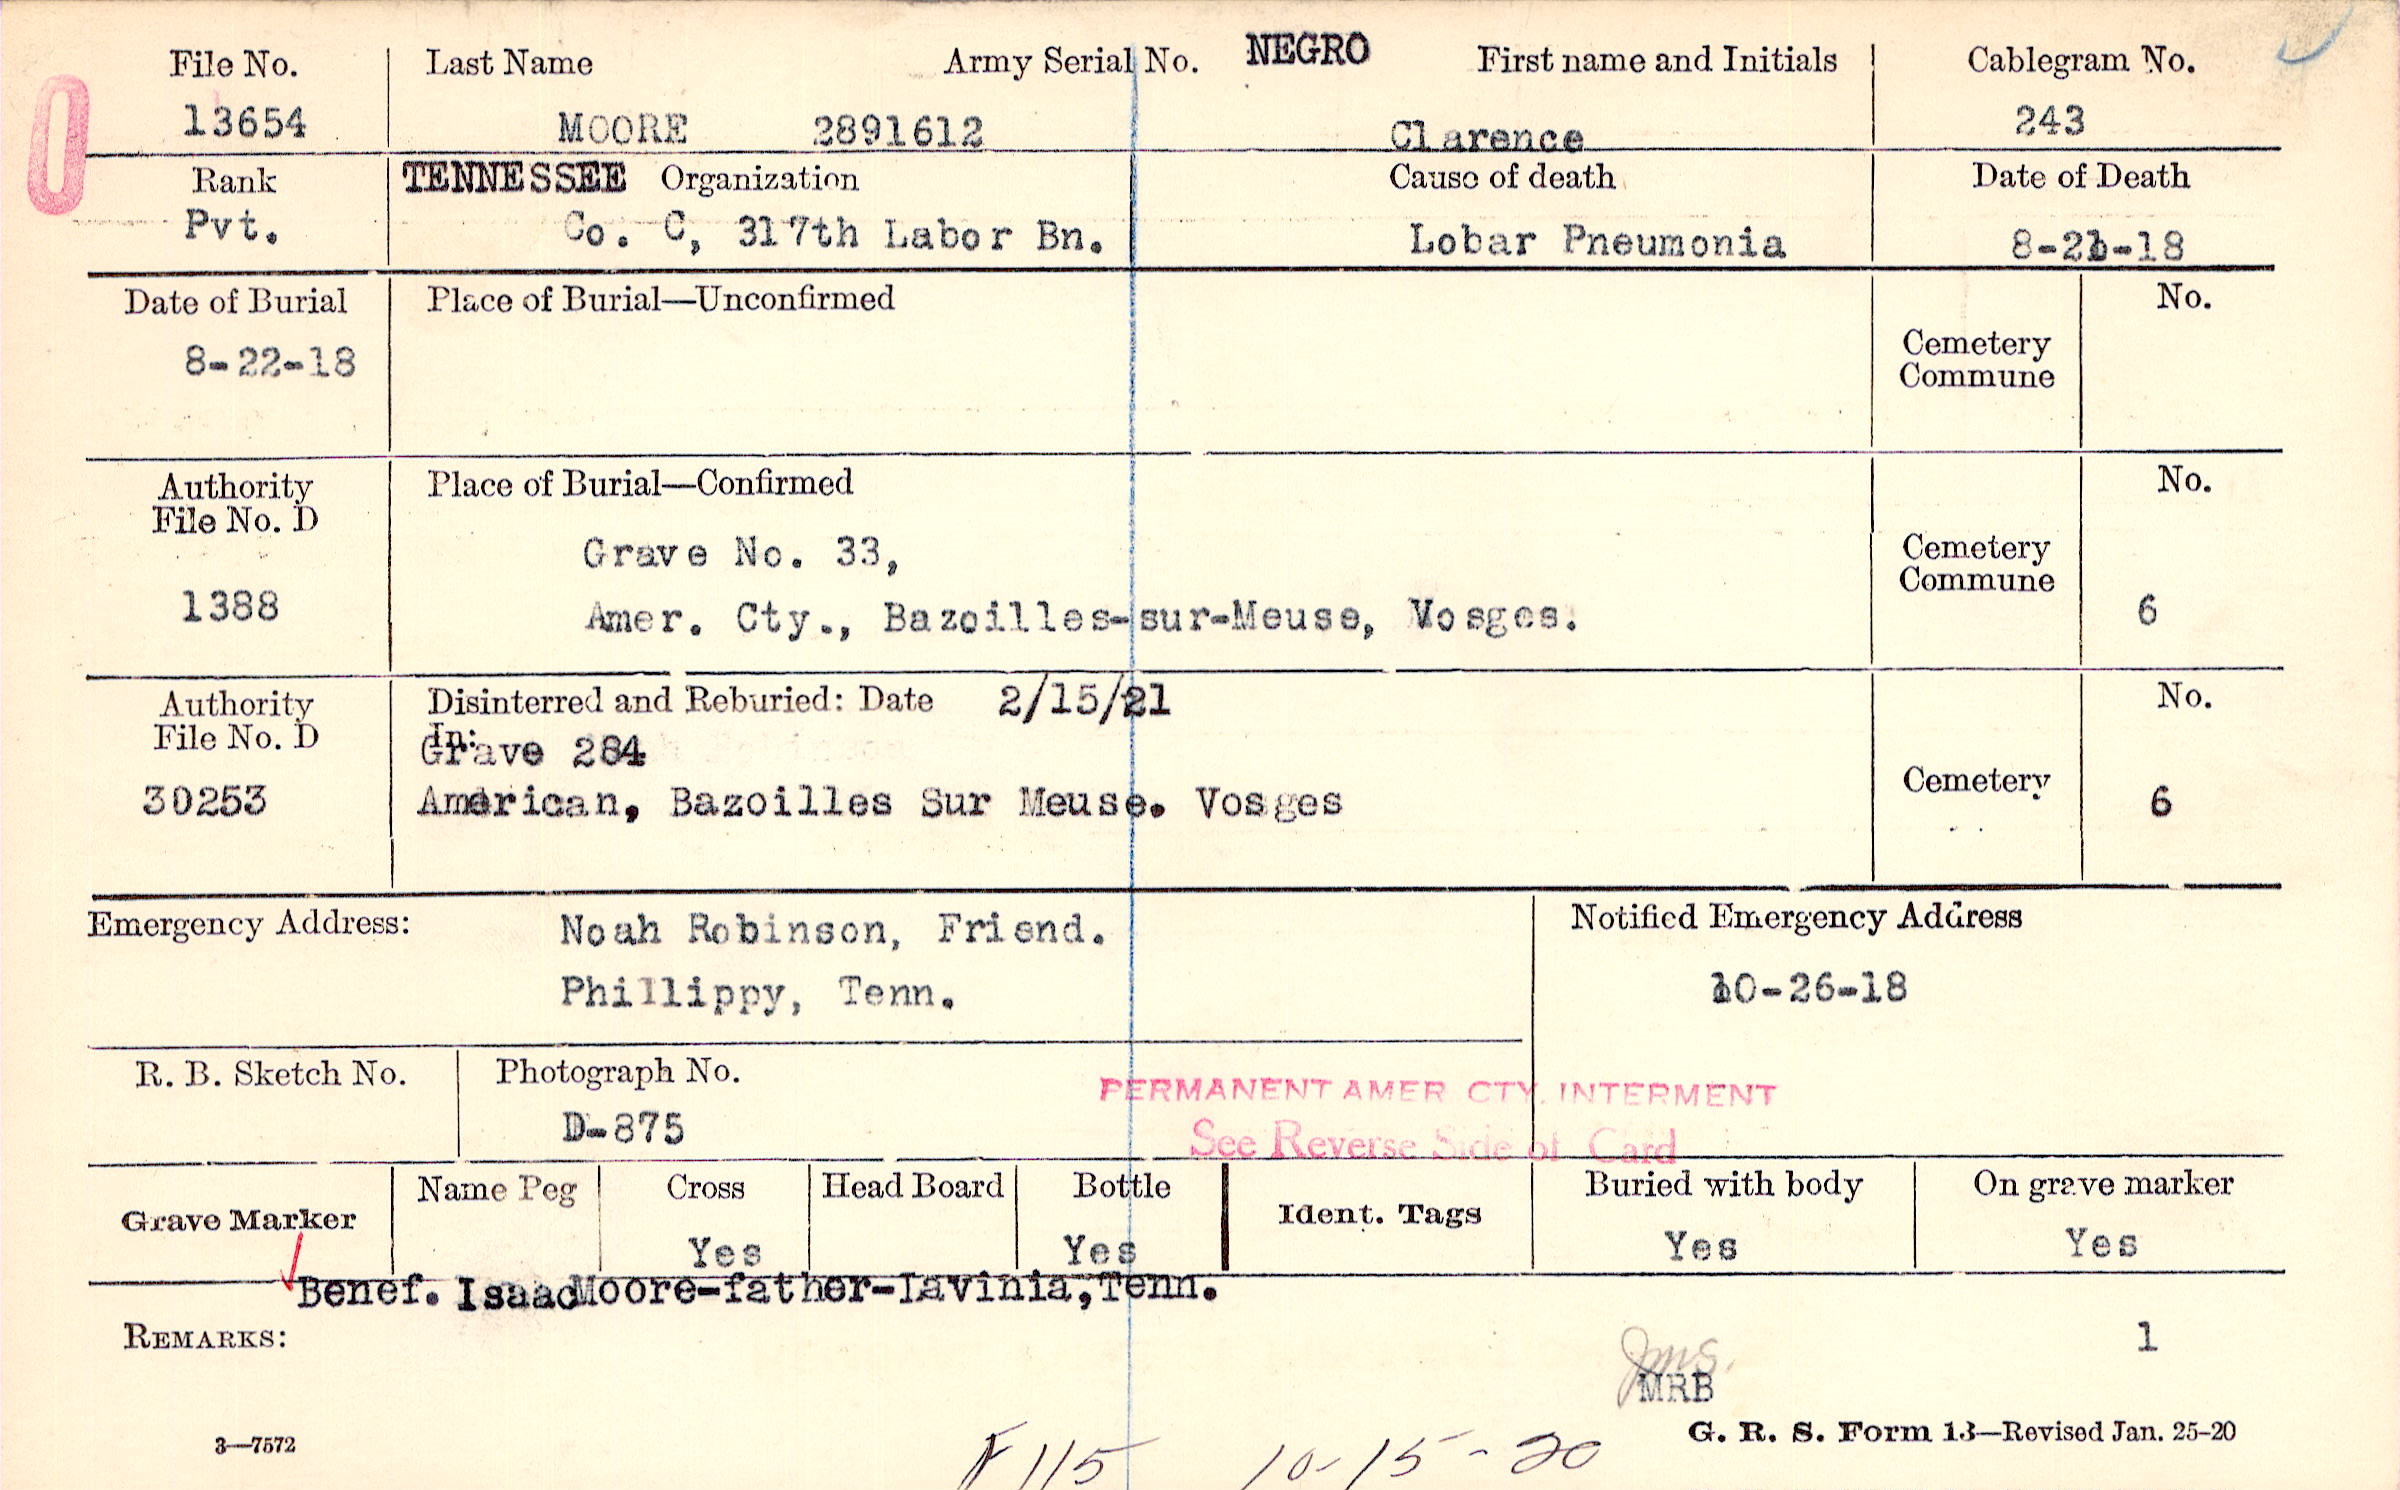 File No. Last Name Army Serial No. NEGRO First name and Initials Cablegram No.
13654 MOORE 2891612 Clarence 243
Rank TENNESSEE Organization Cause of death Date of Death
Pvt. Co. C, 317th Labor Bn. Lobar Pneumonia 8-21-18
Date of Burial Place of Burial—Unconfirmed No.
8-22-18
Cemetery
Commune
Authority Place of Burial—Confirmed No.
File No. D
Grave No. 33, Cemetery
Commune
1388 Amer. Cty., Bazoilles-sur-Meuse, Vosges. 6
Authority Disinterred and Reburied: Date 2/15/21 No.
File No. D In:
Grave 284
30253 American, Bazoilles Sur Meuse. Vosges Cemetery 6
Emergency Address: Noah Robinson, Friend. Notified Emergency Address
Phillippy, Tenn. 10-26-18
R. B. Sketch No. Photograph No.
PERMANENT AMER CTY. INTERMENT
D-875
See Reverse Side of Card
Grave Marker Name Peg Cross Head Board Bottle Ident. Tags Buried with body On grave marker
Yes Yes Yes Yes
Benef. Isaac Moore-father-Lavinia, Tenn.
REMARKS: 1
MRB
3—7572 G. R. S. Form 13—Revised Jan. 25-20
115 10-15-20